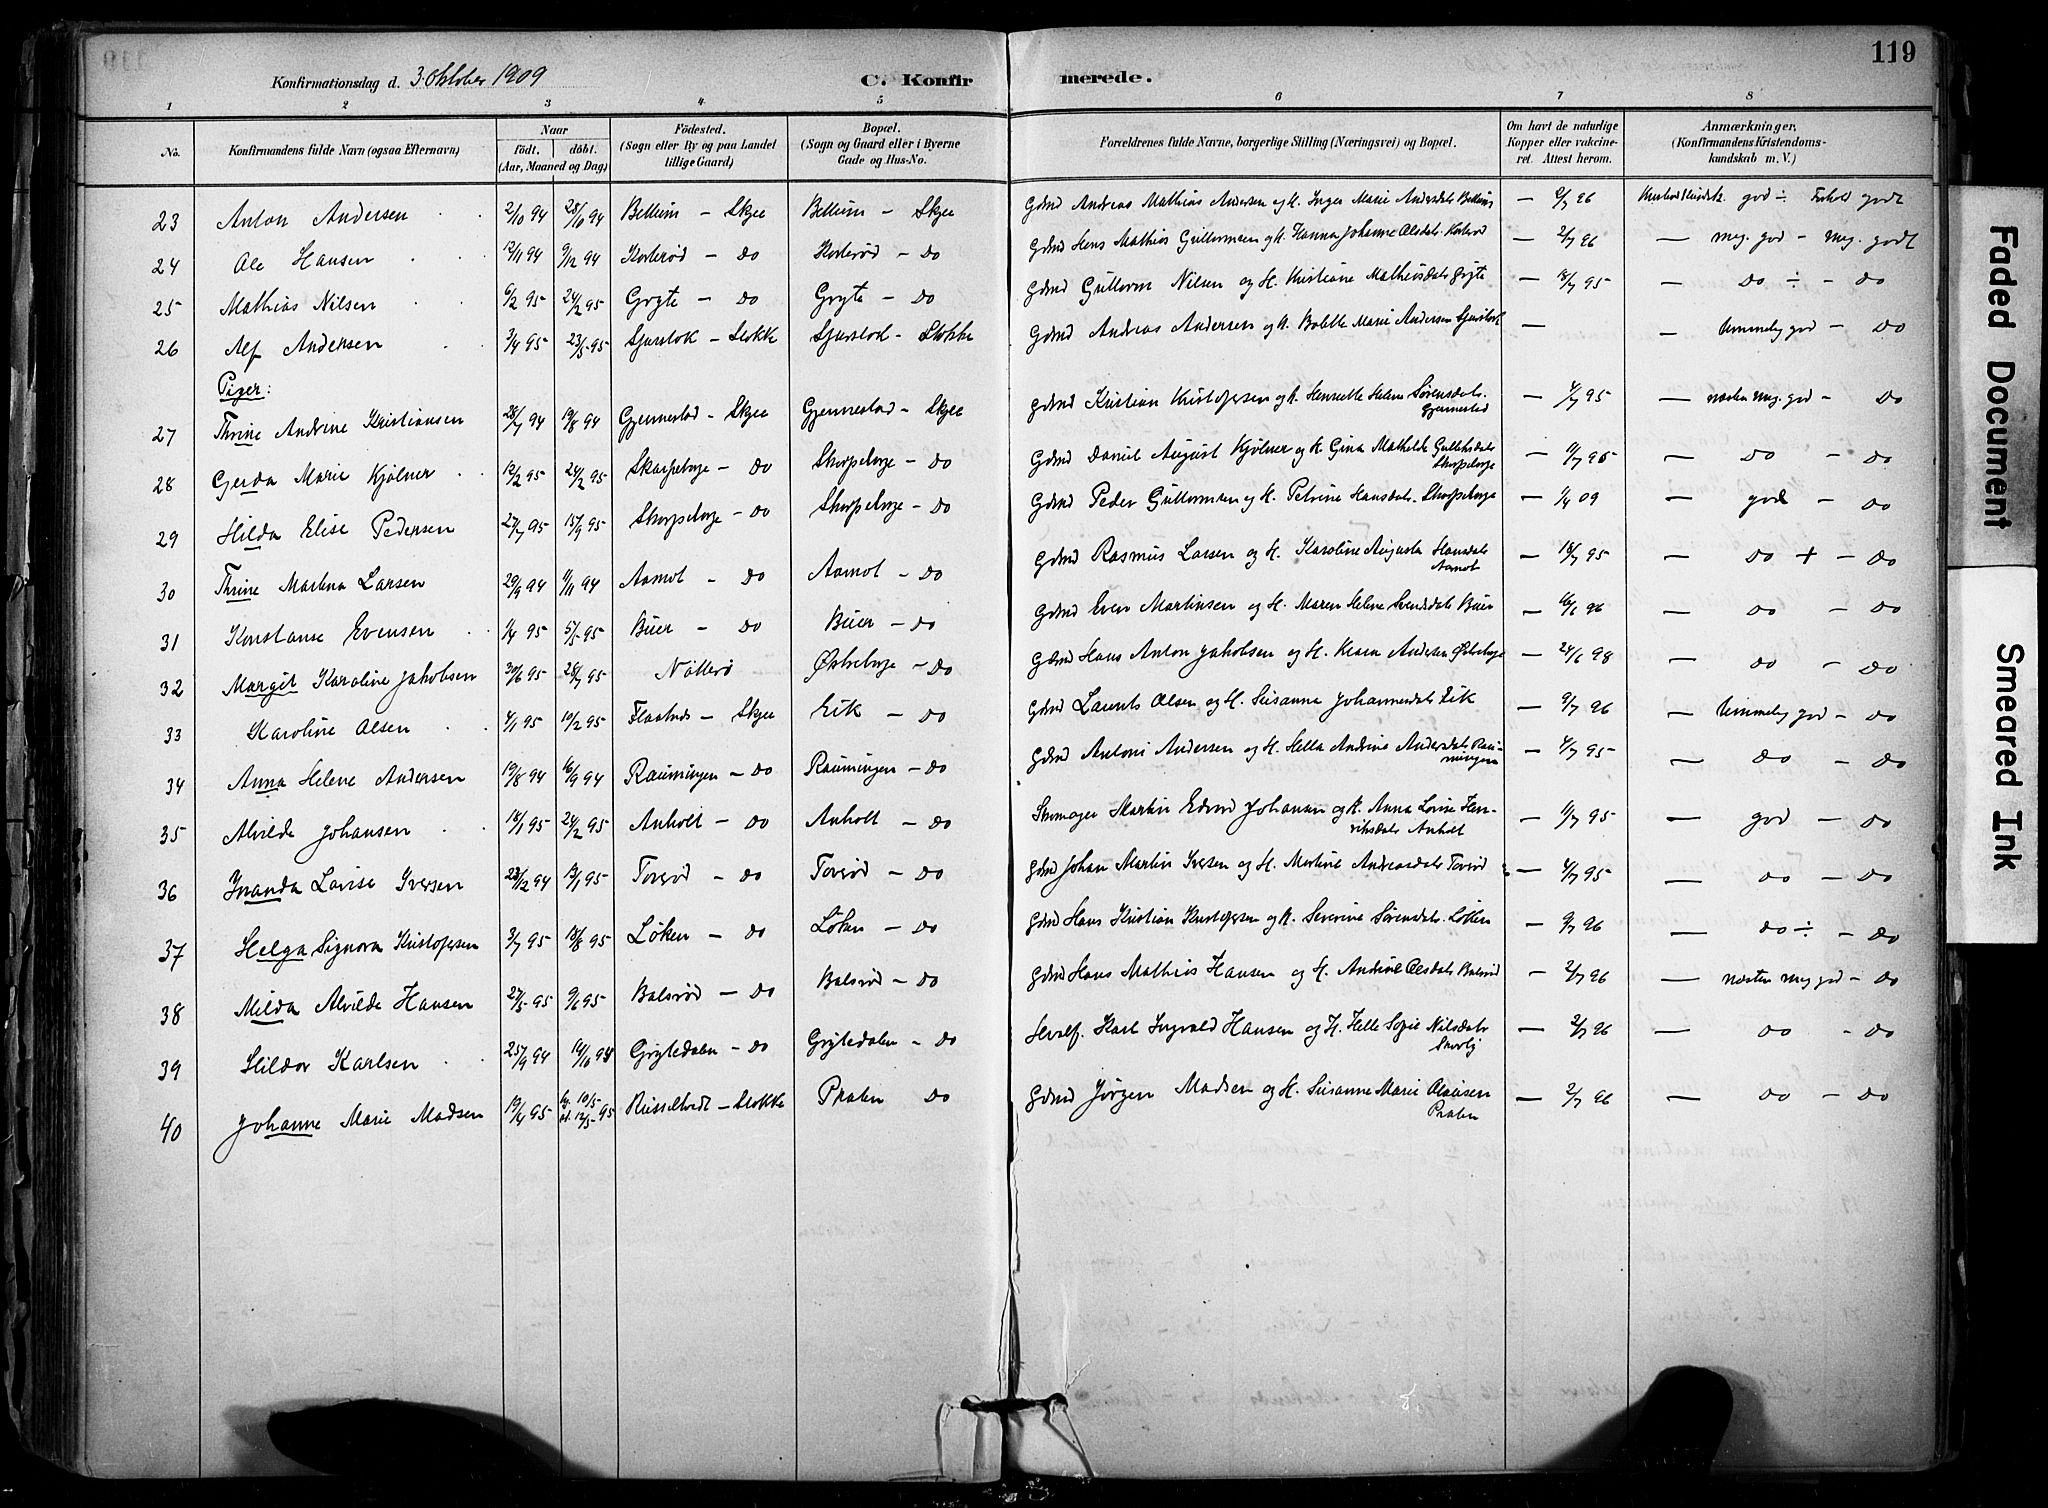 119
Konfirmationsdag d. 3. Oktober 1909 C. Konfirmerede.
1 2 3 4 5 6 7 8
No. Konfirmandens fulde Navn (ogsaa Efternavn) Naar födt. döbt. (Aar, Maaned og Dag) Födested. (Sogn eller By og paa Landet tillige Gaard) Bopæl. (Sogn og Gaard eller i Byerne Gade og Hus-No. Forældrenes fulde Navne, borgerlige Stilling (Næringsvei) og Bopæl. Om havt de naturlige Kopper eller vakcineret. Attest herom. Anmærkninger, (Konfirmandens Kristendomskundskab m. V.)
23 Anton Andersen 2/10 94 28/10 94 Bellum - Skjee Bellum - Skjee Gdmd Andreas Mathias Andersen og H. Inger Marie Andersdatr Bellum - 2/7 96 god ÷ Forhold godt
24 Ole Hansen 12/11 94 9/12 94 Korterød - Do Korterød - Do Gdmd Hans Mathias Gullormsen og H. Hanna Johanne Olsdatr - 2/7 96 - meg. god - meg. godt
25 Mathias Nilsen 6/2 95 24/2 95 Gryte - Do Gryte - Do Gdmd Gullorm Nilsen og H. Kristiane Mathiasdatr Gryte - 18/7 95 - Do ÷ - Do
26 Alf Andersen 3/4 95 23/5 95 Sjuestok - Stokke Sjuestok - Stokke Gdmd Andreas Andersen og H. Bolette Marie Andersen - - temmelig god - Do
Piger:
27 Thrine Andrine Kristiansen 28/7 94 19/8 94 Gjennestad - Skjee Gjennestad - Skjee Gdmd Kristian Kristofersen og H. Henriette Helene Sørensdatr. Gjennestad - 4/7 95 - næsten meg. god - Do
28 Gerda Marie Kjølner 12/2 95 24/2 95 Skarpeborge - Do Skorpeborge - Do Gdmd Daniel August Kjølner og H. Gina Mathilde Skorpeborge - 11/7 95 - Do - Do
29 Hilda Elise Pedersen 27/7 95 15/9 95 Skorpeborge - Do Skorpeborge - Do Gdmd Peder Gullormsen og H. Petrine Hansdatr. Skorpeborge - 1/4 09 - god - Do
30 Thrine Martina Larsen 29/9 94 11/11 94 Aamot - Do Aamot - Do Gdmd Rasmus Larsen og H. Karoline Augusta Hansdatr Aamot - 18/7 95 - Do + - Do
31 Konstanse Evensen 1/4 95 5/5 95 Buer - Do Buer - Do Gdmd Even Martinsen og H. Maren Helene Svendsdatr Buer - 16/6 96 - Do - Do
32 Margit Karoline Jakobsen 30/6 95 28/7 95 Nøtterø Østreborge - Do Gdmd Hans Anton Jakobsen og H. Klara Andersen Østreborge - 24/6 98 - Do - Do
33 Karoline Olsen 4/1 95 10/2 95 - Skjee Eik - Do Gdmd Laurits Olsen og H. Susanne Johannesdatr Eik - 9/7 96 - temmelig god - Do
34 Anna Helene Andersen 19/8 94 16/9 94 Rauningen - Do Rauningen - Do Gdmd Antoni Andersen og H. Hella Andrine Andersdatr Rauningen - 4/7 95 - Do - Do
35 Alvilde Johansen 18/1 95 24/2 95 Anholt - Do Anholt - Do Skomager Martin Edvard Johansen og H. Anna Lovise Henriksdatr Anholt - 11/7 95 - god - Do
36 Jnanda Lovise Iversen 23/12 94 13/1 95 Torerød - Do Torerød - Do Gdmd Johan Martin Iversen og H. Martine Andreasdatr Torerød - 4/7 95 - Do - Do
37 Helga Signora Kristofersen 3/7 95 18/8 95 Løken - Do Løken - Do Gdmd Hans Kristian Kristofersen og H. Severine Sørensdatr. Løken - 9/7 96 - Do ÷ - Do
38 Milda Alvilde Hansen 27/5 95 9/6 95 Balsrød - Do Balsrød - Do Gdmd Hans Mathias Hansen og H. Andrine Olsdatr Balsrød - 2/7 96 - næsten meg god - Do
39 Hildor Karlsen 25/9 94 14/10 94 Grytedalen - Do Grytedalen - Do Karl Ingvald Hansen og H. Helle Sofie Nilsdatr - 2/7 96 - Do - Do
40 Johanne Marie Madsen 19/4 95 10/5 12/5 95 Russeltvedt - Stokke Praben Do Gdmd Jørgen Madsen og H. Susanne Marie Praben - 2/7 96 - Do - Do
Faded Document
Smeared Ink